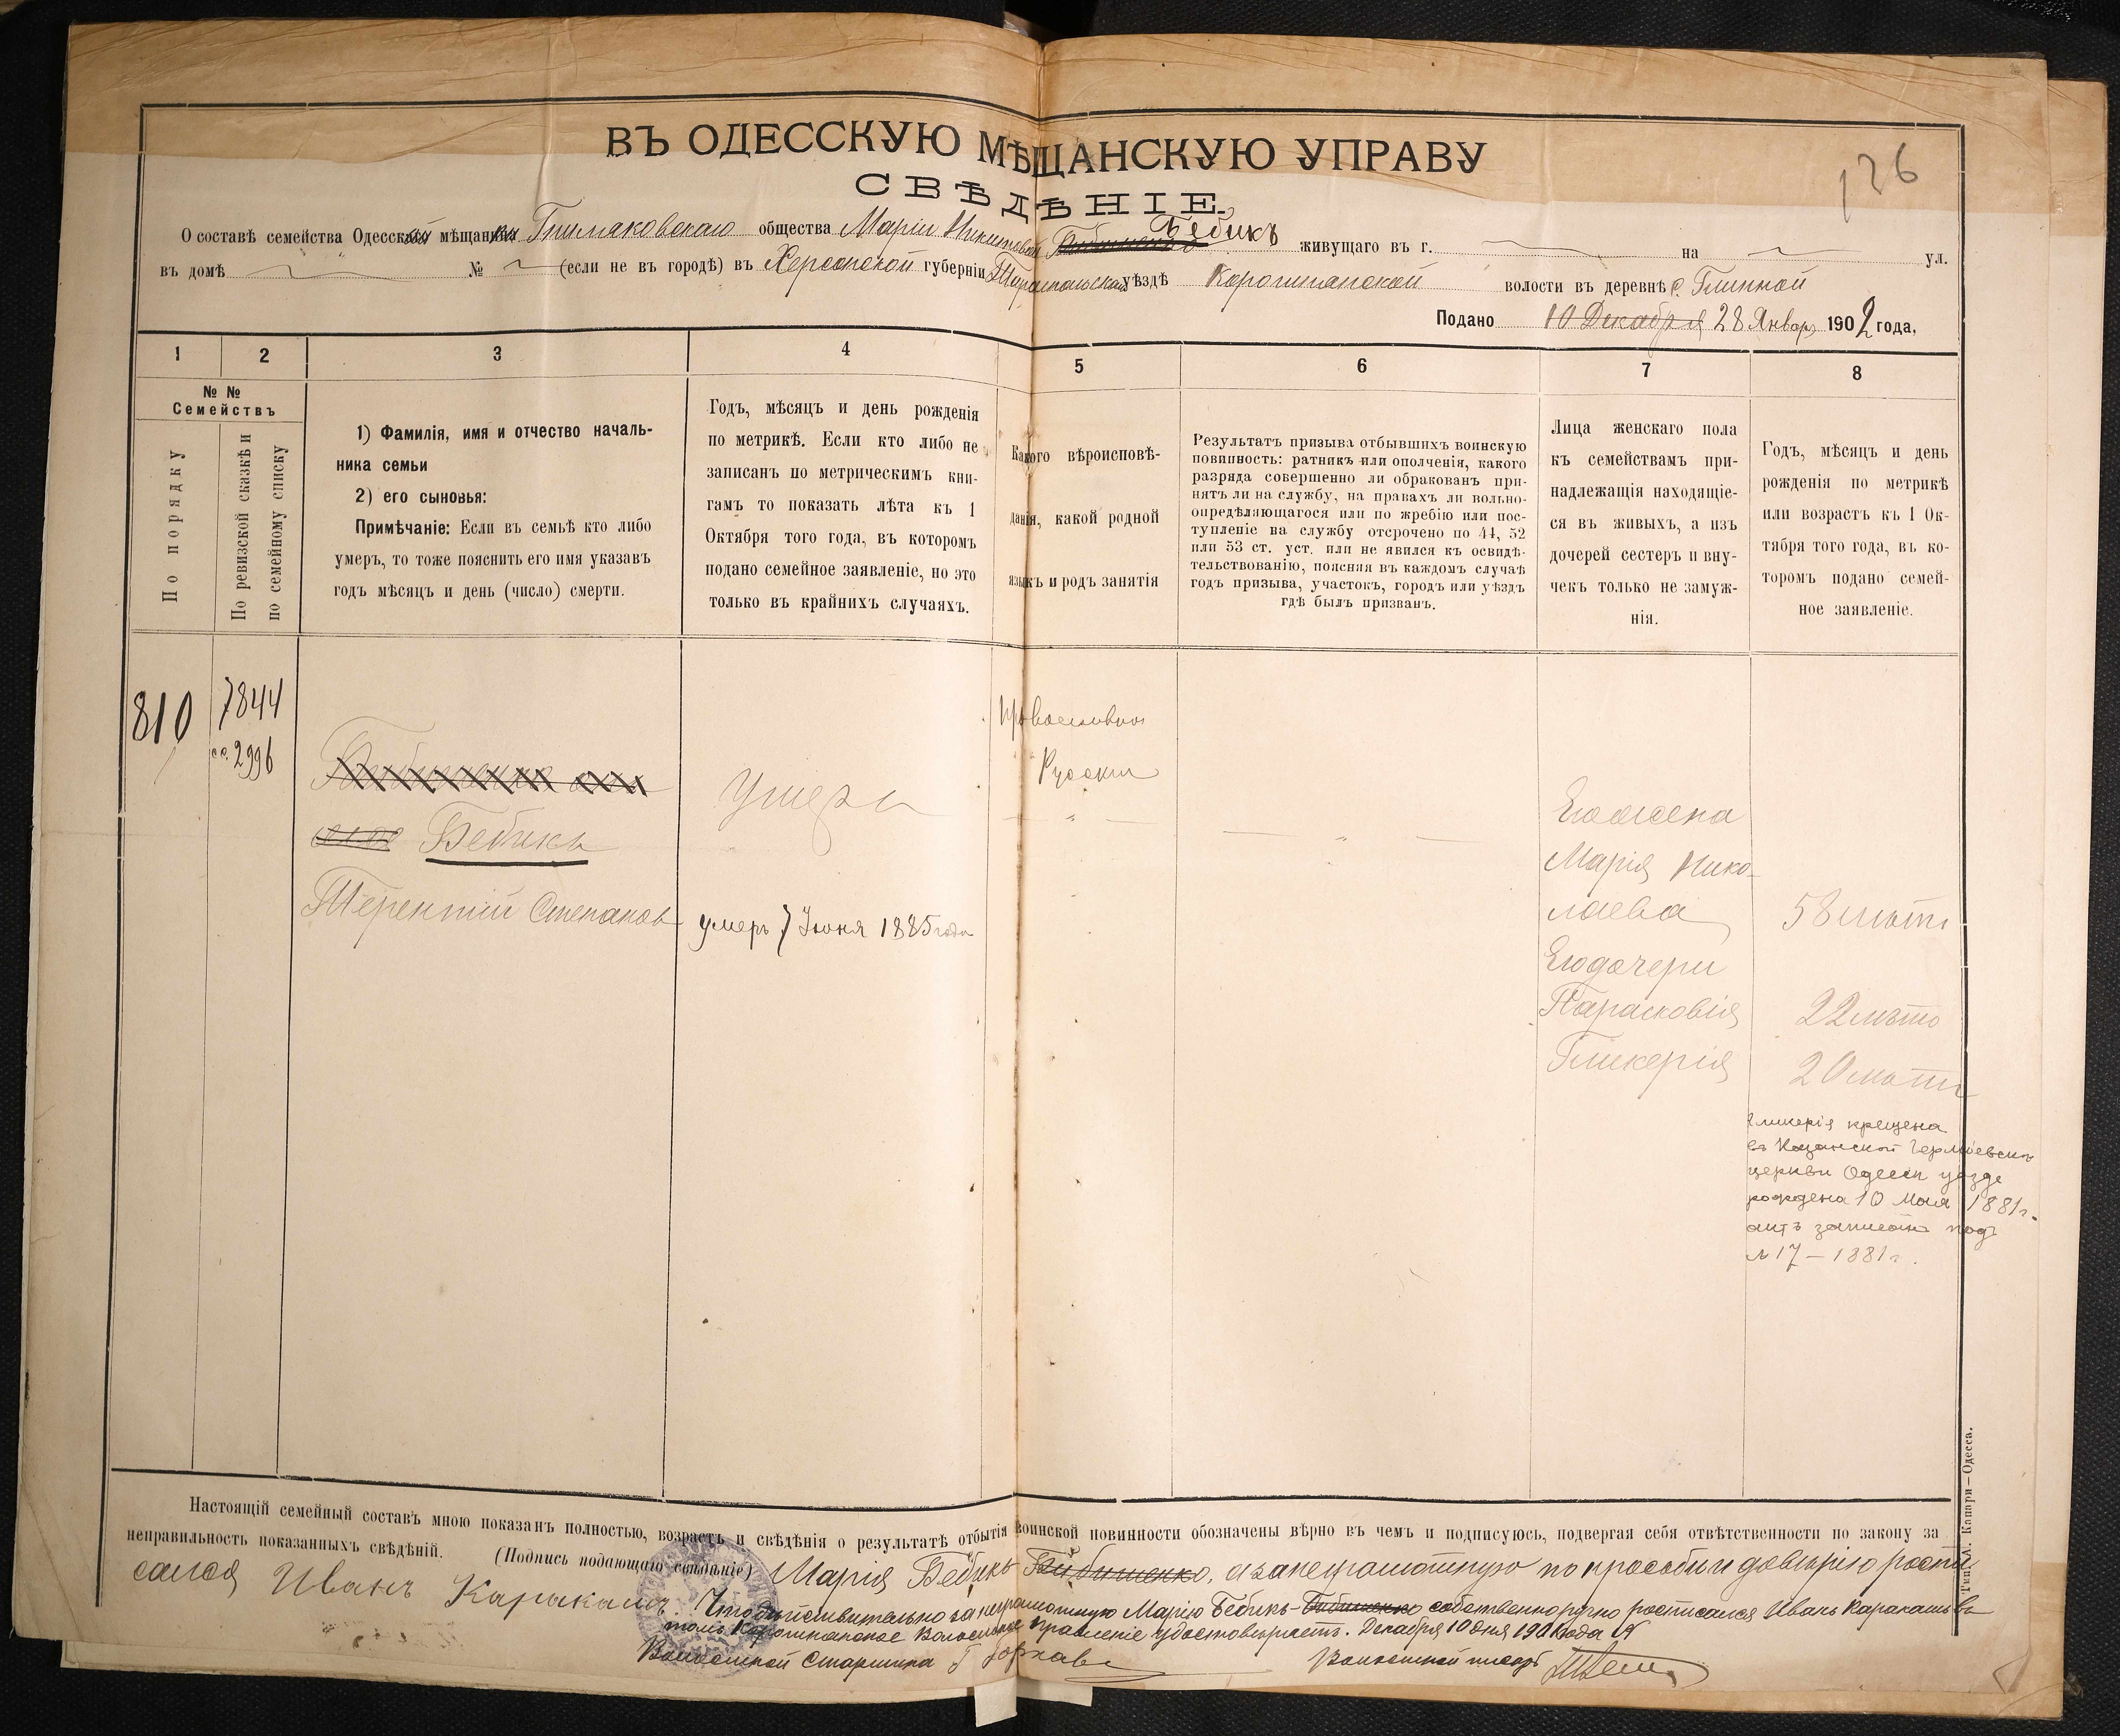 126
ВЪ ОДЕССКУЮ МѢЩАНСКУЮ УПРАВУ
СВѢДѢНІЕ.
О составѣ семейства Одесской мѣщанки Гнилаковскаго общества Маріи Никитовой Бебикъ живущаго въ г. на ул.
въ домѣ № (если не въ городѣ) въ Херсонской губерніи Тираспольскомъ уѣздѣ Коротнянской волости въ деревнѣ с. Глинной
Подано 10 Декабря 28 Январ 1902 года,
1 2 3 4 5 6 7 8
№ №
Семействъ
По порядку
По ревизской сказкѣ и
по семейному списку
1) Фамилія, имя и отчество началь-
ника семьи
2) его сыновья:
Примѣчаніе: Если въ семьѣ кто либо
умеръ, то тоже пояснить его имя указавъ
годъ мѣсяцъ и день (число) смерти.
Годъ, мѣсяцъ и день рожденія
по метрикѣ. Если кто либо не
записанъ по метрическимъ кни-
гамъ то показать лѣта къ 1
Октября того года, въ которомъ
подано семейное заявленіе, но это
только въ крайнихъ случаяхъ.
Какого вѣроисповѣ-
данія, какой родной
языкъ и родъ занятія
Результатъ призыва отбывшихъ воинскую
повинность: ратникъ или ополченія, какого
разряда совершенно ли обракованъ при-
нятъ ли на службу, на правахъ ли вольно-
опредѣляющагося или по жребію или пос-
тупленіе на службу отсрочено по 44, 52
или 53 ст. уст. или не явился къ освидѣ-
тельствованію, поясняя въ каждомъ случаѣ
годъ призыва, участокъ, городъ или уѣздъ
гдѣ былъ призванъ.
Лица женскаго пола
къ семействамъ при-
надлежащія находящіе-
ся въ живыхъ, а изъ
дочерей сестеръ и вну-
чекъ только не замуж-
нія.
Годъ, мѣсяцъ и день
рожденія по метрикѣ
или возрастъ къ 1 Ок-
тября того года, въ ко-
торомъ подано семей-
ное заявленіе.
810
7844
2996
Бебикъ
Терентій Степановъ
Умеръ
умеръ 7 Іюня 1885 года
Православной
Русскій
Его жена
Марія Нико-
лаева
58 лѣтъ
Его дочери
Парасковія
22 лѣтъ
Гликерія
20 лѣтъ
Гликерія крещена
въ Казанской
церкви Одесск уѣзде
рождена 10 Мая 1881 г.
актъ записанъ подъ
№ 17 – 1881 г.
Настоящій семейный составъ мною показанъ полностью, возрастъ и свѣдѣнія о результатѣ отбытія воинской повинности обозначены вѣрно въ чемъ и подписуюсь, подвергая себя отвѣтственности по закону за
неправильность показанныхъ свѣдѣній. (Подпись подающаго свѣдѣніе) Марія Бебикъ, а за неграмотную по просьбѣ и довѣрію роспи
сался Иванъ Каракашъ. Что дѣйствительно за неграмотную Марію Бебикъ собственноручно росписался Иванъ Каракашъ въ
томъ Коротнянское Волостное Правленіе удостовѣряетъ. Декабря 10 дня 1901 года
Волостной Старшина
Волостной писарь
Тип. М. Капари – Одесса.